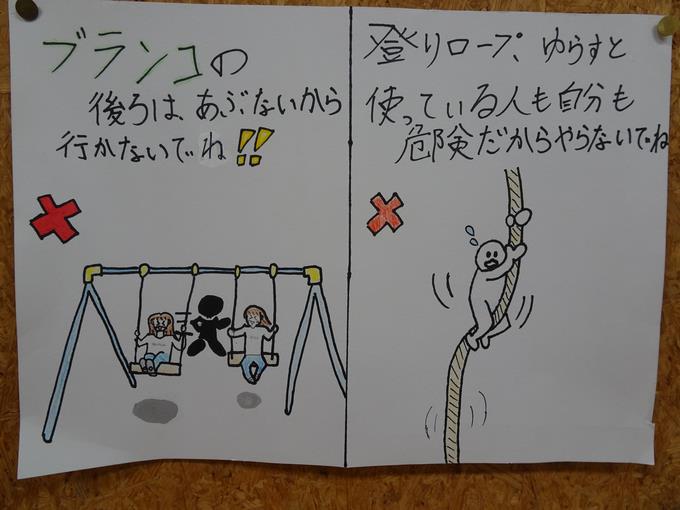 ブランコの
後ろは、あぶないから
行かないでね!!
登りロープ、ゆらすと
使っている人も自分も
危険だからやらないでね